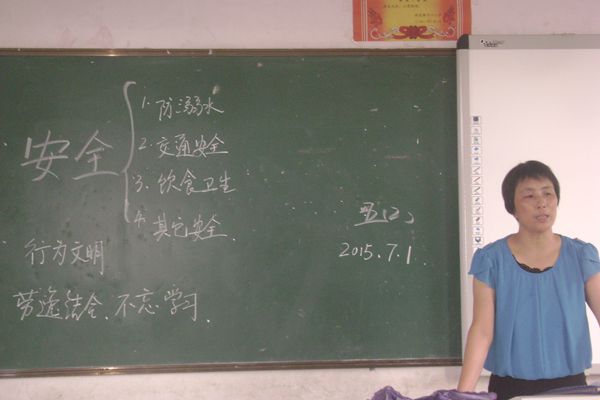 安全
1. 防溺水
2. 交通安全
3. 饮食卫生
4. 其它安全
五(2)
2015.7.1.
行为文明
劳逸结合、不忘学习.